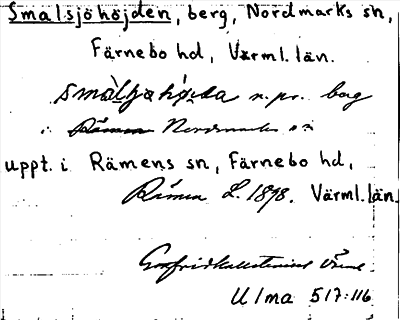 Smalsjöhöjden, berg, Nordmarks sn,
Färnebo hd, Värml. län.
n. pr. berg
i Rämen Nordmarks sn
uppt. i Rämens sn, Färnebo hd,
Rämen L. 1898. Värml. län.
Gottfrid Kallstenius
Ulma 517:116